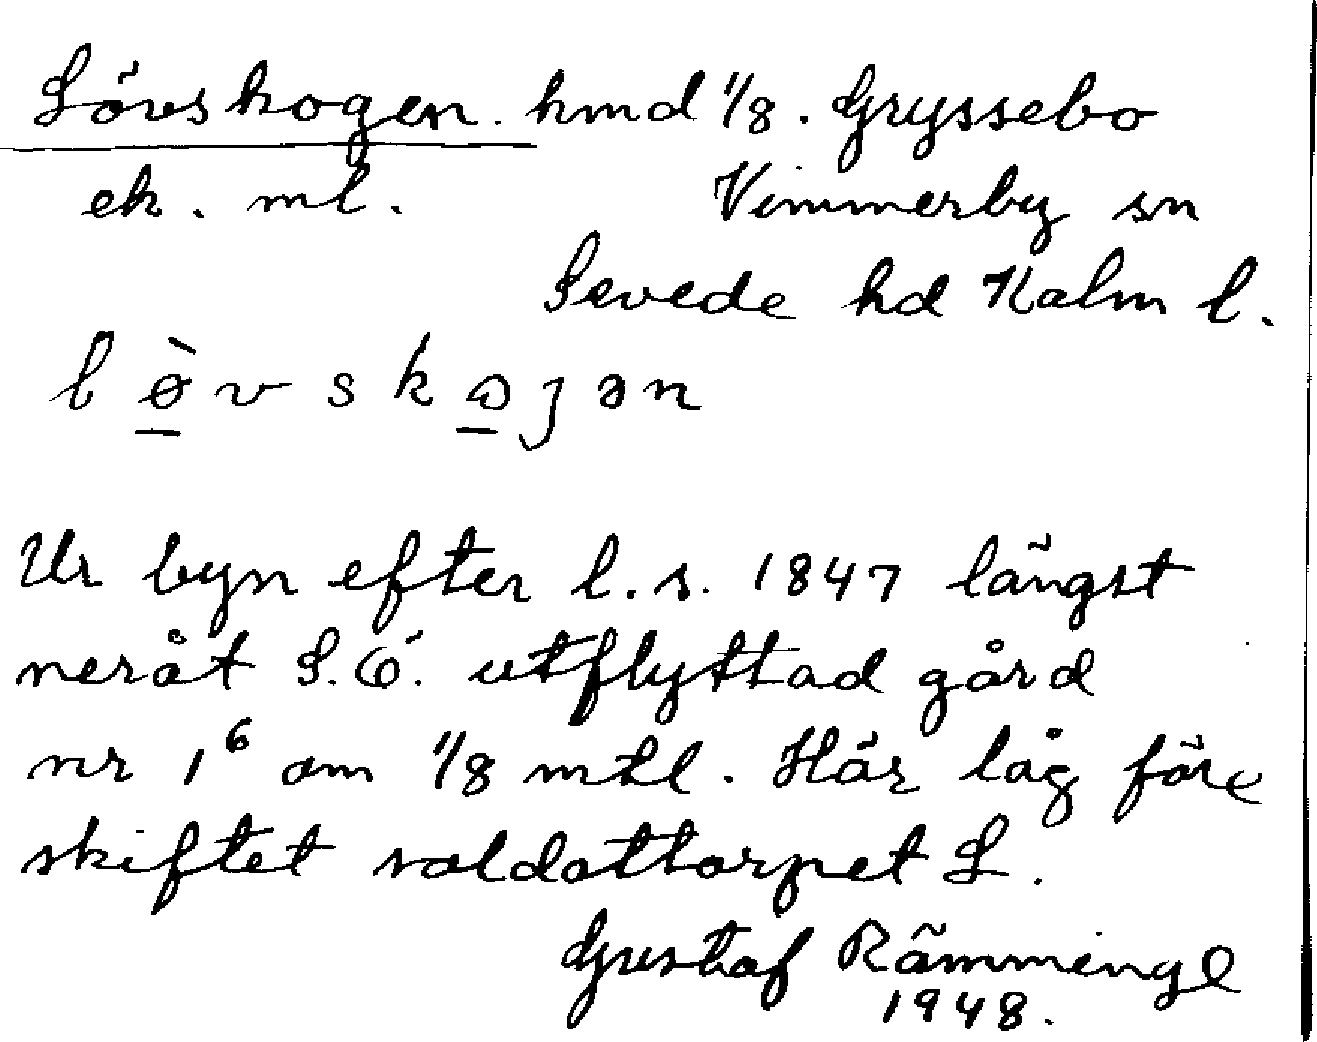 Lövskogen. hmd 1/8. Gryssebo
ek. ml. Vimmerby sn
Sevede hd Kalm l.
lø̀vskɷȷən
Ur byn efter l.s. 1847 längst
neråt S.Ö. utflyttad gård
nr 1⁶ om 1/8 mtl. Här låg före
skiftet soldattorpet L.
Gustaf Rämminge
1948.